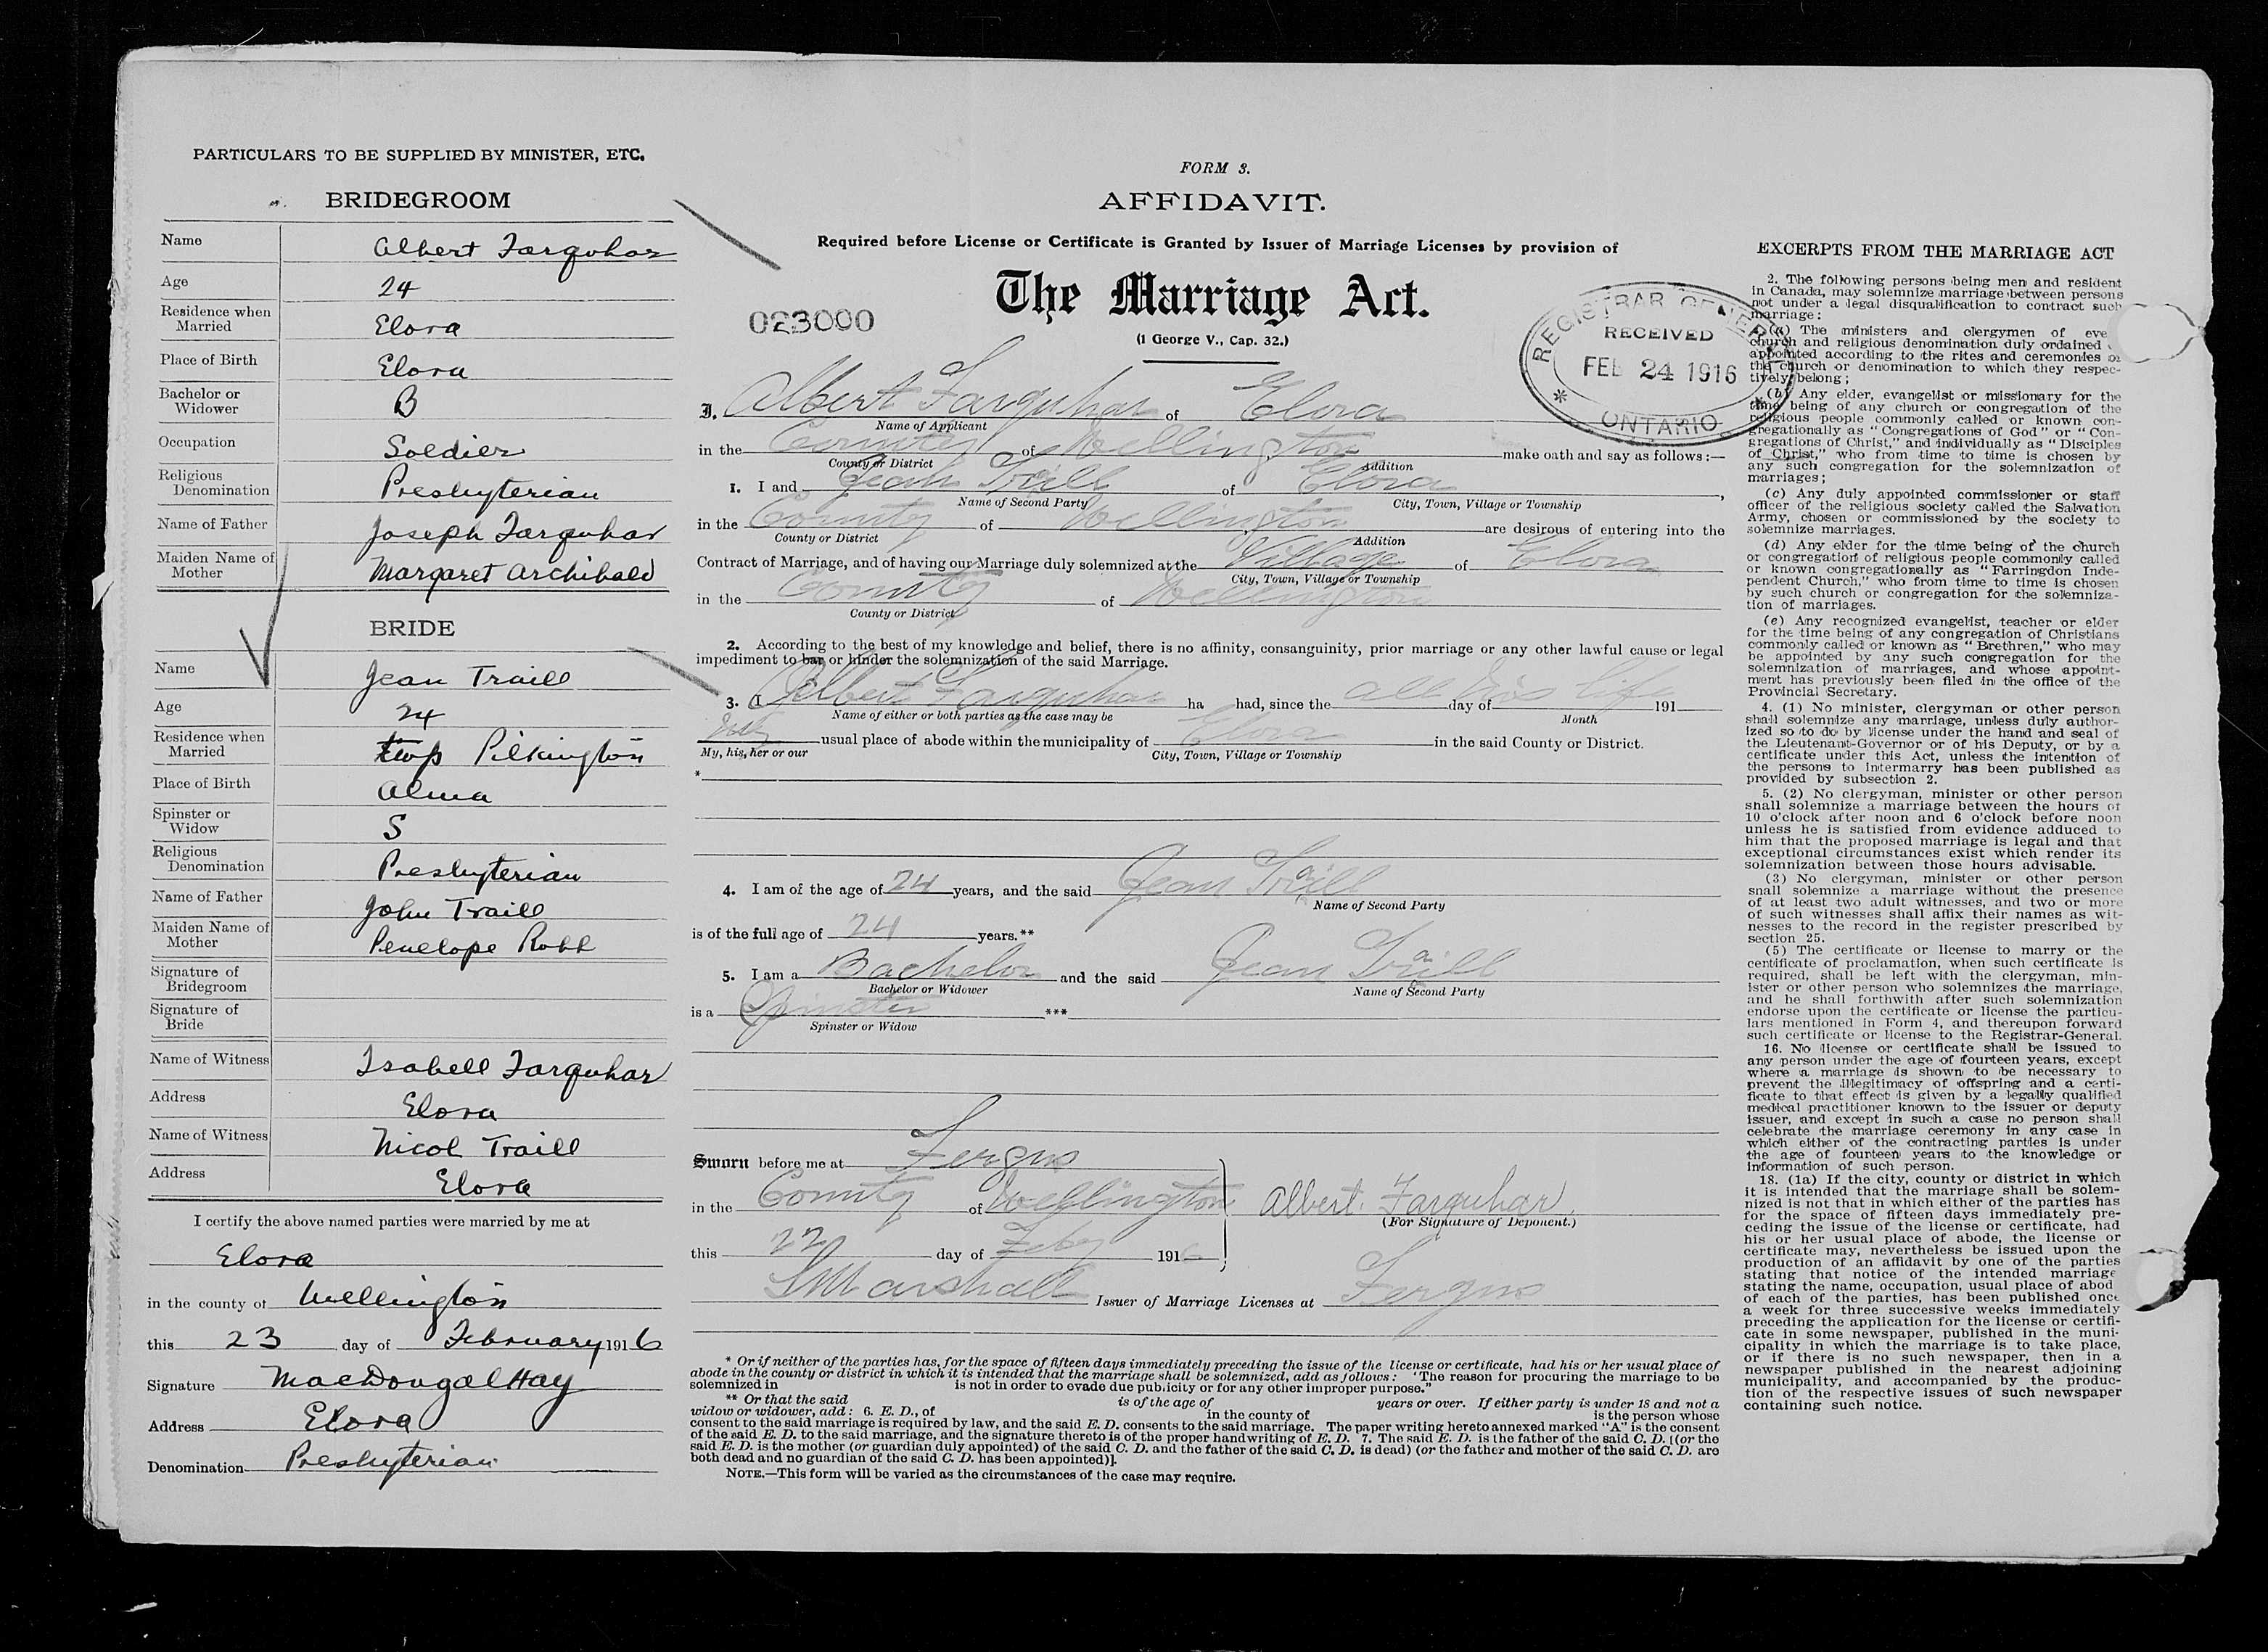 PARTICULARS TO BE SUPPLIED BY MINISTER, ETC.
BRIDEGROOM
Name Albert Farquhar
Age 24
Residence when Married Elora
Place of Birth Elora
Bachelor or Widower B
Occupation Soldier
Religious Denomination Presbyterian
Name of Father Joseph Farquhar
Maiden Name of Mother Margaret Archibald
BRIDE
Name Jean Traill
Age 24
Residence when Married twp Pilkington
Place of Birth Alma
Spinster or Widow S
Religious Denomination Presbyterian
Name of Father John Traill
Maiden Name of Mother Penelope Robb
Signature of Bridegroom
Signature of Bride
Name of Witness Isabell Farquhar
Address Elora
Name of Witness Nicol Traill
Address Elora
I certify the above named parties were married by me at
Elora
in the county of Wellington
this 23 day of February 1916
Signature MacDougal Hay
Address Elora
Denomination Presbyterian
FORM 3.
AFFIDAVIT.
Required before License or Certificate is Granted by Issuer of Marriage Licenses by provision of
The Marriage Act.
023000
(1 George V., Cap. 32.)
REGISTRAR GENERAL
RECEIVED
FEB 24 1916
ONTARIO
I, Albert Farquhar of Elora
Name of Applicant
in the County of Wellington make oath and say as follows:—
County or District Addition
1. I and Jean Traill of Elora,
Name of Second Party City, Town, Village or Township
in the County of Wellington are desirous of entering into the
County or District Addition
Contract of Marriage, and of having our Marriage duly solemnized at the Village of Elora
City, Town, Village or Township
in the County of Wellington
County or District
2. According to the best of my knowledge and belief, there is no affinity, consanguinity, prior marriage or any other lawful cause or legal
impediment to bar or hinder the solemnization of the said Marriage.
3. I Albert Farquhar ha had, since the all his life day of 191
Name of either or both parties as the case may be Month
my usual place of abode within the municipality of Elora in the said County or District.
My, his, her or our City, Town, Village or Township
*
4. I am of the age of 24 years, and the said Jean Traill
Name of Second Party
is of the full age of 24 years.**
5. I am a Bachelor and the said Jean Traill
Bachelor or Widower Name of Second Party
is a Spinster ***
Spinster or Widow
Sworn before me at Fergus
in the County of Wellington Albert Farquhar
(For Signature of Deponent.)
this 22 day of Feby 1916
Marshall Issuer of Marriage Licenses at Fergus
* Or if neither of the parties has, for the space of fifteen days immediately preceding the issue of the license or certificate, had his or her usual place of
abode in the county or district in which it is intended that the marriage shall be solemnized, add as follows: 'The reason for procuring the marriage to be
solemnized in is not in order to evade due publicity or for any other improper purpose."
** Or that the said is of the age of years or over. If either party is under 18 and not a
widow or widower, add: 6. E. D., of in the county of is the person whose
consent to the said marriage is required by law, and the said E. D. consents to the said marriage. The paper writing hereto annexed marked "A" is the consent
of the said E. D. to the said marriage, and the signature thereto is of the proper handwriting of E. D. 7. The said E. D. is the father of the said C. D. [(or the
said E. D. is the mother (or guardian duly appointed) of the said C. D. and the father of the said C. D. is dead) (or the father and mother of the said C. D. are
both dead and no guardian of the said C. D. has been appointed)].
NOTE.—This form will be varied as the circumstances of the case may require.
EXCERPTS FROM THE MARRIAGE ACT
2. The following persons being men and resident
in Canada, may solemnize marriage between persons
not under a legal disqualification to contract such
marriage:
(a) The ministers and clergymen of eve
church and religious denomination duly ordained
appointed according to the rites and ceremonies o
the church or denomination to which they respec-
tively belong;
(b) Any elder, evangelist or missionary for the
time being of any church or congregation of the
religious people commonly called or known con-
gregationally as "Congregations of God" or "Con-
gregations of Christ," and individually as "Disciples
of Christ," who from time to time is chosen by
any such congregation for the solemnization of
marriages;
(c) Any duly appointed commissioner or staff
officer of the religious society called the Salvation
Army, chosen or commissioned by the society to
solemnize marriages.
(d) Any elder for the time being of the church
or congregation of religious people commonly called
or known congregationally as "Farringdon Inde-
pendent Church," who from time to time is chosen
by such church or congregation for the solemniza-
tion of marriages.
(e) Any recognized evangelist, teacher or elder
for the time being of any congregation of Christians
commonly called or known as "Brethren," who may
be appointed by any such congregation for the
solemnization of marriages, and whose appoint-
ment has previously been filed in the office of the
Provincial Secretary.
4. (1) No minister, clergyman or other person
shall solemnize any marriage, unless duly author-
ized so to do by license under the hand and seal of
the Lieutenant-Governor or of his Deputy, or by a
certificate under this Act, unless the intention of
the persons to intermarry has been published as
provided by subsection 2.
5. (2) No clergyman, minister or other person
shall solemnize a marriage between the hours of
10 o'clock after noon and 6 o'clock before noon
unless he is satisfied from evidence adduced to
him that the proposed marriage is legal and that
exceptional circumstances exist which render its
solemnization between those hours advisable.
(3) No clergyman, minister or other person
shall solemnize a marriage without the presence
of at least two adult witnesses, and two or more
of such witnesses shall affix their names as wit-
nesses to the record in the register prescribed by
section 25.
(5) The certificate or license to marry or the
certificate of proclamation, when such certificate is
required, shall be left with the clergyman, min-
ister or other person who solemnizes the marriage,
and he shall forthwith after such solemnization
endorse upon the certificate or license the particu-
lars mentioned in Form 4, and thereupon forward
such certificate or license to the Registrar-General.
16. No license or certificate shall be issued to
any person under the age of fourteen years, except
where a marriage is shown to be necessary to
prevent the illegitimacy of offspring and a certi-
ficate to that effect is given by a legally qualified
medical practitioner known to the issuer or deputy
issuer, and except in such a case no person shall
celebrate the marriage ceremony in any case in
which either of the contracting parties is under
the age of fourteen years to the knowledge or
information of such person.
18. (1a) If the city, county or district in which
it is intended that the marriage shall be solem-
nized is not that in which either of the parties has
for the space of fifteen days immediately pre-
ceding the issue of the license or certificate, had
his or her usual place of abode, the license or
certificate may, nevertheless be issued upon the
production of an affidavit by one of the parties
stating that notice of the intended marriage
stating the name, occupation, usual place of abod
of each of the parties, has been published once
a week for three successive weeks immediately
preceding the application for the license or certifi-
cate in some newspaper, published in the muni-
cipality in which the marriage is to take place,
or if there is no such newspaper, then in a
newspaper published in the nearest adjoining
municipality, and accompanied by the produc-
tion of the respective issues of such newspaper
containing such notice.